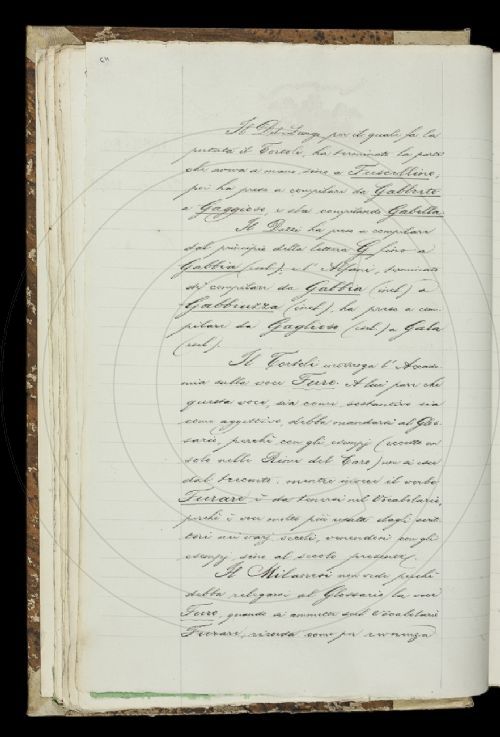 Il Del Lungo, per il quale fa la
puntata il Tortoli, ha terminato la parte
che aveva a mano, sino a Fuscellino,
poi ha preso a compilare da Gabbrete
a Gaggioso, e sta compilando Gabella
Il Dazzi ha preso a compilare
dal principio della lettera G fino a
Gabbia (incl.), e l'Alfani, terminato
di compilare da Gabbia (incl.) a
Gabbiuzza (incl.), ha preso a com-
pilare da Gaglioso (incl.) a Gala
(incl.).
Il Tortoli interroga l'Accade-
mia sulla voce Furo. A lui pare che
questa voce, sia come sostantivo sia
come aggettivo, debba mandarsi al Glos-
sario, perchè con gli esempj (eccetto un
solo nelle Rime del Caro) non si esce
dal trecento, mentre invece il verbo
Furare è da tenersi nel Vocabolario,
perchè è voce molto più usata dagli scrit-
tori nei varj secoli, venendosi con gli
esempj sino al secolo presente.
Il Milanesi non vede perchè
debba relegarsi al Glossario la voce
Furo, quando si ammette nel Vocabolario
Furare, ricorda come per